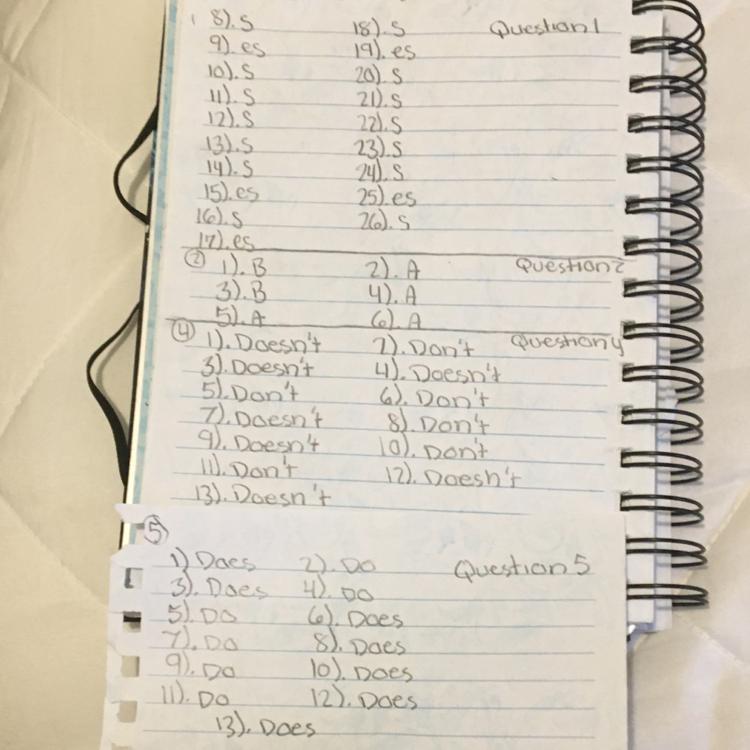 8). S 18). S Question 1
9). es 19). es
10). S 20). S
11). S 21). S
12). S 22). S
13). S 23). S
14). S 24). S
15). es 25). es
16). S 26). S
17). es
② 1). B 2). A Question 2
3). B 4). A
5). A 6). A
④ 1). Doesn't 2). Don't Question 4
3). Doesn't 4). Doesn't
5). Don't 6). Don't
7). Doesn't 8). Don't
9). Doesn't 10). Don't
11). Don't 12). Doesn't
13). Doesn't
⑤
1) Does 2). Do Question 5
3). Does 4). Do
5). Do 6). Does
7). Do 8). Does
9). Do 10). Does
11). Do 12). Does
13). Does